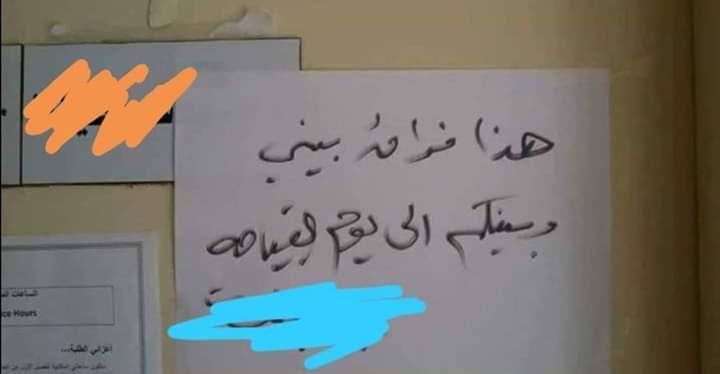 هذا فراقُ بيني
وبينكم الى يوم القيامه
الساعات
ice Hours
أعزائي الطلبة...